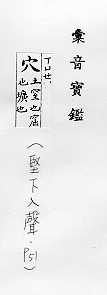 彙音寶鑑
ㄒㄩㄝˋ
穴土室也窟也壙也
(堅下入聲.P51)